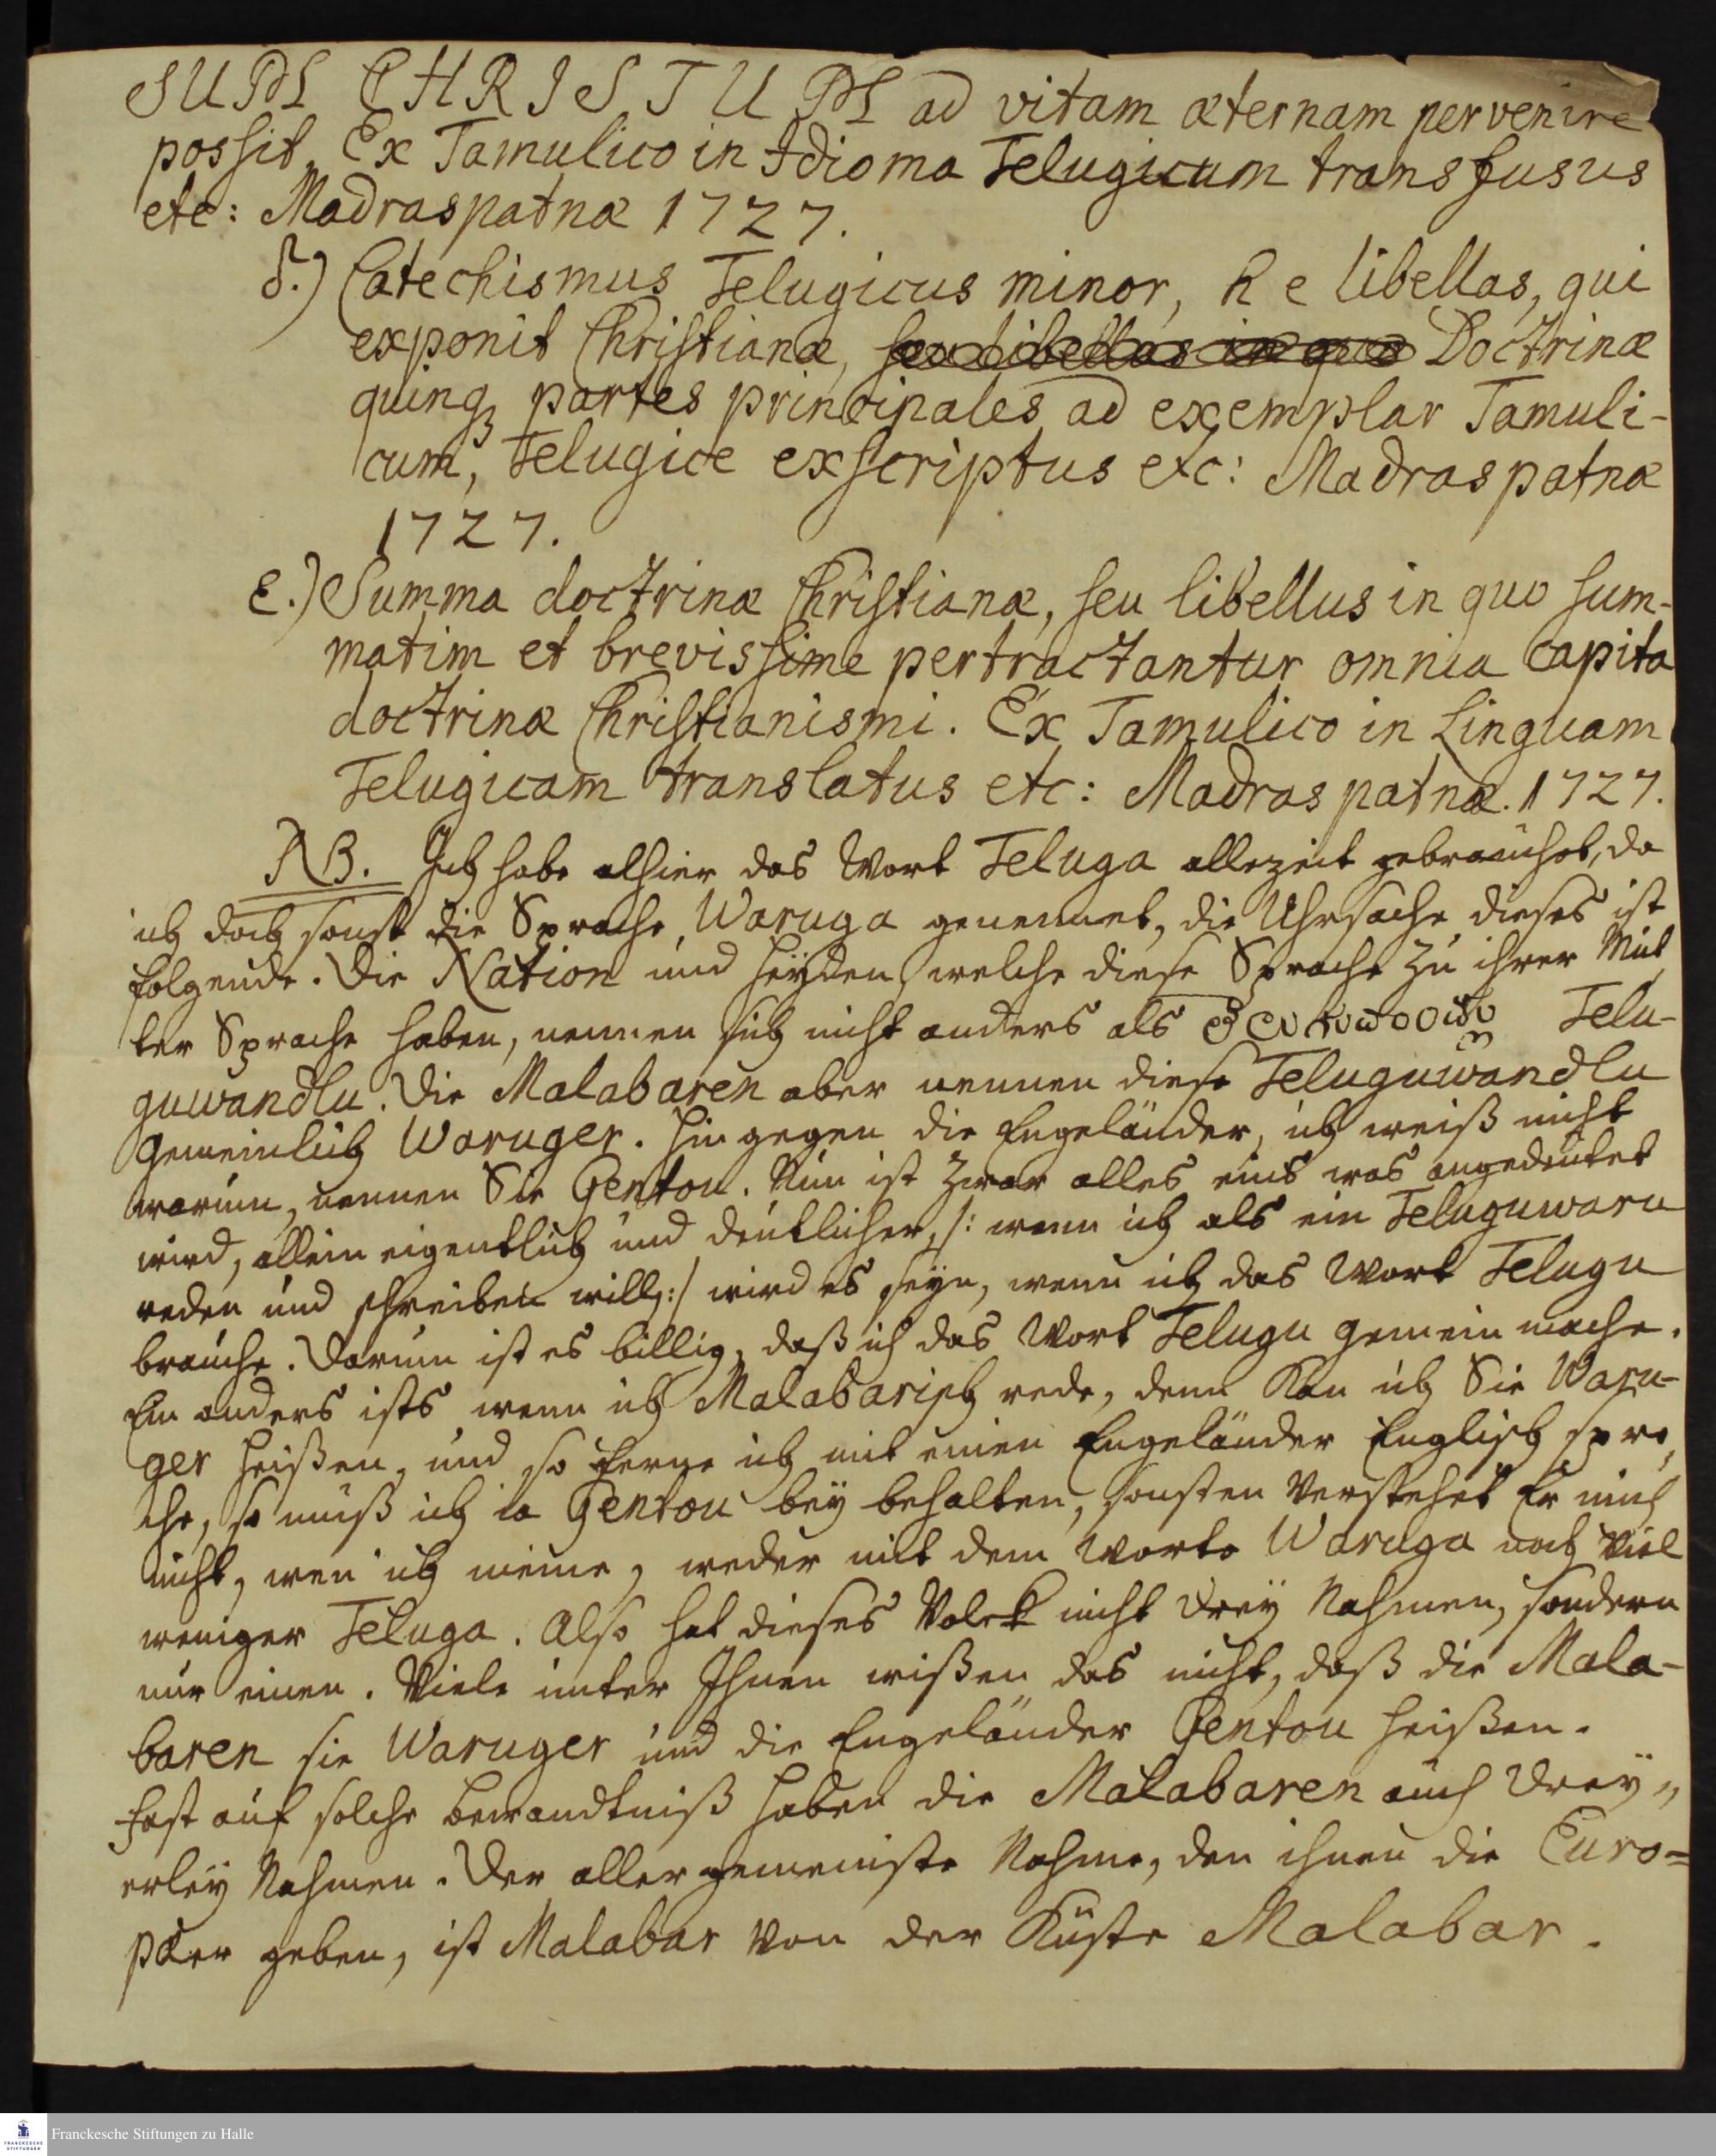 SUM CHRISTUM ad vitam æternam pervenire
possit. Ex Tamulico in Idioma Telugicum transfusus
etc: Madraspatnæ 1727.
δ.) Catechismus Telugicus minor, h e libellas, qui
exponit Christianæ, seu libellus in quo Doctrinæ
quinqꝫ partes principales ad exemplar Tamuli-
cum, Telugice exscriptus etc: Madraspatnæ
1727.
ε.) Summa doctrinæ Christianæ, seu libellus in quo sum-
matim et brevissime pertractantur omnia capita
doctrinæ Christianismi. Ex Tamulico in Linguam
Telugicam translatus etc: Madraspatnæ. 1727.
NB. Ich habe alhier das Wort Teluga allezeit gebrauchet, da
ich doch sonst die Sprache Waruga genennet, die Uhrsache dieses ist
folgende. Die Nation und Heyden, welche diese Sprache zu ihrer Mut
ter Sprache haben, nennen sich nicht anders als Telu-
guwandlu. Die Malabaren aber nennen diese Teluguwandlu
gemeinlich Waruger. Hingegen die Engeländer, ich weiß nicht
warum, nennen Sie Gentou. Nun ist zwar alles eins was angedeutet
wird, allein eigentlich und deutlicher, /: wenn ich als ein Teluguwaru
reden und schreiben will :/ wird es seyn, wenn ich das Wort Telugu
brauche. Darum ist es billig, daß ich das Wort Telugu gemein mache.
Ein anders ists wenn ich Malabarisch rede, denn kan ich Sie Waru-
ger heißen, und so ferne ich mit einen Engeländer Englisch spre,
che, so muß ich ia Gentou bey behalten, sonsten verstehet Er mich
nicht, wen ich meine, weder mit dem Worte Waruga noch viel
weniger Teluga. Also hat dieses Volck nicht drey Nahmen, sondern
nur einen. Viele unter Ihnen wißen das nicht, daß die Mala-
baren sie Waruger und die Engeländer Gentou heißen.
Fast auf solche bewandtniß haben die Malabaren auch drey„
erley Nahmen. Der aller gemeinste Nahme, den ihnen die Euro=
pæer geben, ist Malabar von der Küste Malabar.
Franckesche Stiftungen zu Halle
FRANCKESCHE
STIFTUNGEN